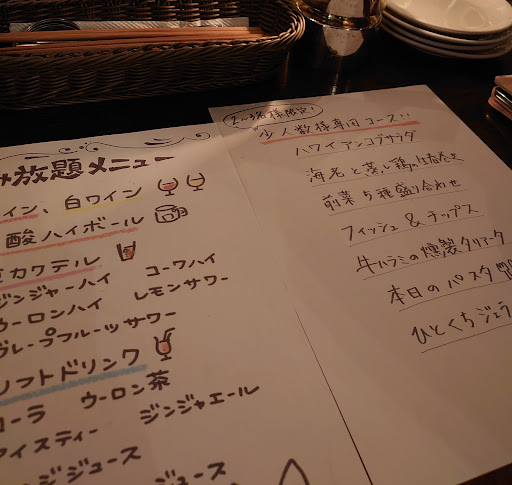 放題メニュー
イン、白ワイン
酸ハイボール
カクテル
ジンジャーハイ コークハイ
ウーロンハイ レモンサワー
グレープフルーツサワー
ソフトドリンク
コーラ ウーロン茶
アイスティー ジンジャエール
ジュース ジュース
2〜3名様限定!
少人数様専用コース!!
ハワイアンコブサラダ
海老と蒸し鶏の生春巻き
前菜5種盛り合わせ
フィッシュ&チップス
牛ハラミの燻製タリアータ
本日のパスタ
ひとくちジェラ